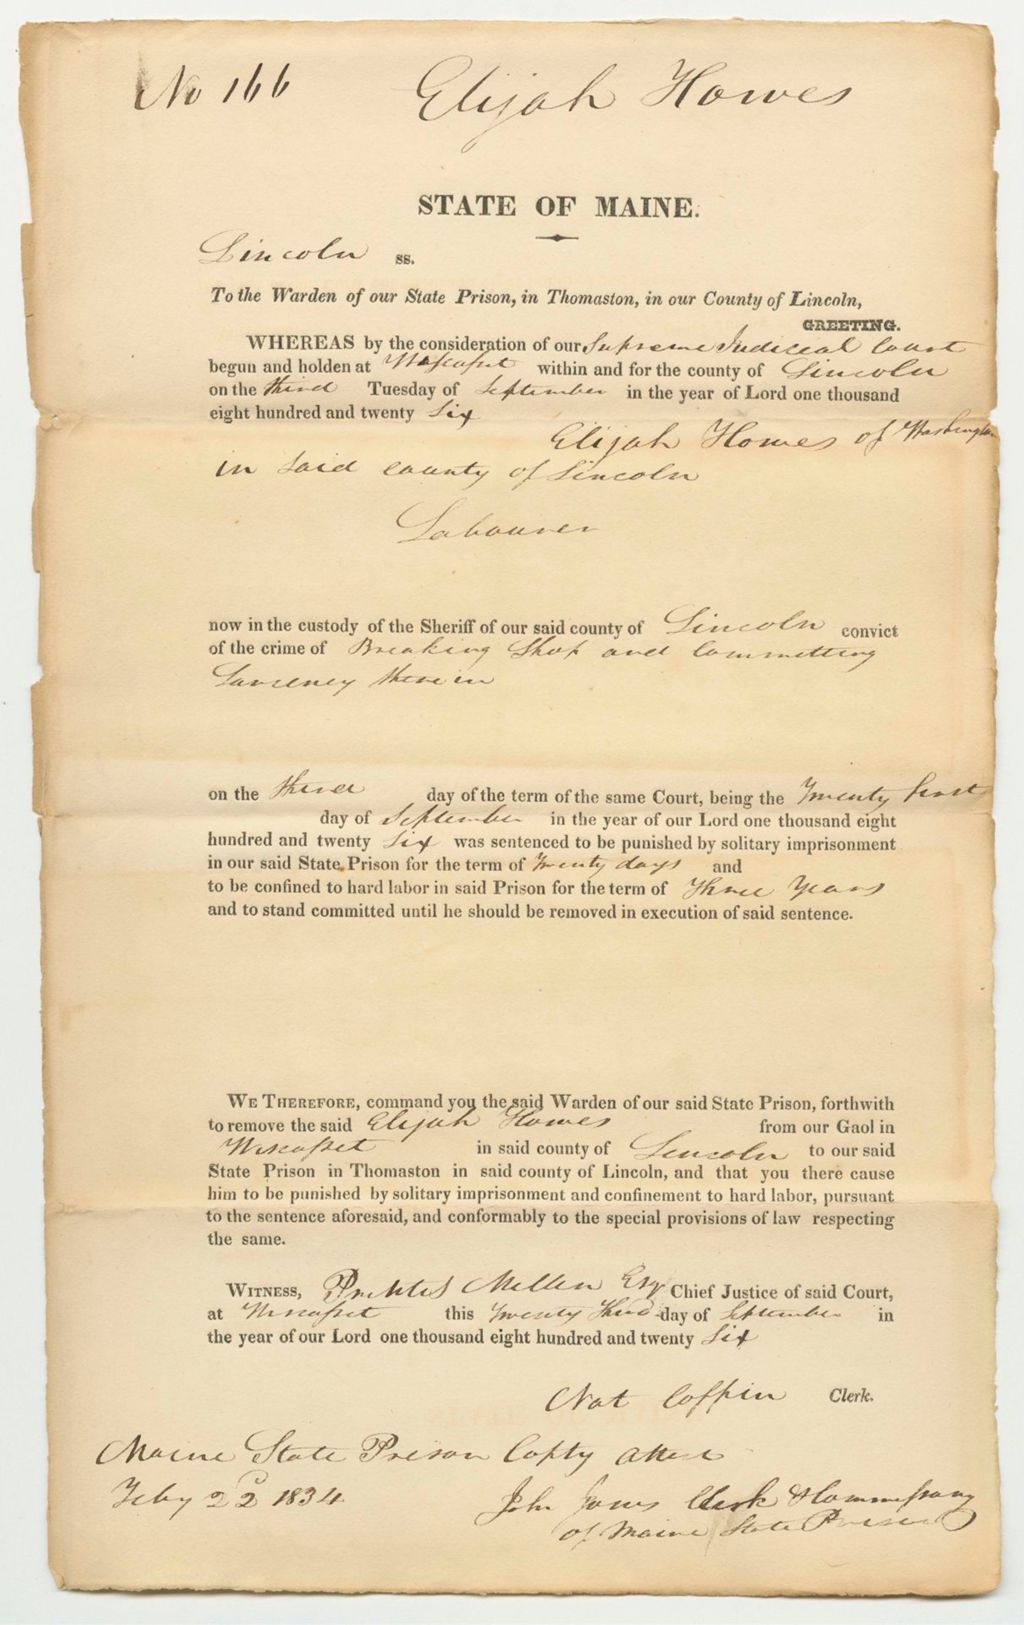 No 166 Elijah Howes
STATE OF MAINE.
Lincoln ss.
To the Warden of our State Prison, in Thomaston, in our County of Lincoln,
GREETING.
WHEREAS by the consideration of our Supreme Judicial Court
begun and holden at Wiscasset within and for the county of Lincoln
on the third Tuesday of September in the year of Lord one thousand
eight hundred and twenty Six
Elijah Howes of Washington
in said county of Lincoln
Labourer
now in the custody of the Sheriff of our said county of Lincoln convict
of the crime of Breaking Shop and Committing
Larceney therein
on the third day of the term of the same Court, being the Twenty first
day of September in the year of our Lord one thousand eight
hundred and twenty Six was sentenced to be punished by solitary imprisonment
in our said State Prison for the term of Twenty days and
to be confined to hard labor in said Prison for the term of Three Years
and to stand committed until he should be removed in execution of said sentence.
WE THEREFORE, command you the said Warden of our said State Prison, forthwith
to remove the said Elijah Howes from our Gaol in
Wiscasset in said county of Lincoln to our said
State Prison in Thomaston in said county of Lincoln, and that you there cause
him to be punished by solitary imprisonment and confinement to hard labor, pursuant
to the sentence aforesaid, and conformably to the special provisions of law respecting
the same.
WITNESS, Prentiss Mellen Esq Chief Justice of said Court,
at Wiscasset this Twenty third day of September in
the year of our Lord one thousand eight hundred and twenty Six
Nat Coffin Clerk.
Maine State Prison Copy attest
Feby 22d 1834
John Jones Clerk & Commissary
of Maine State Prison